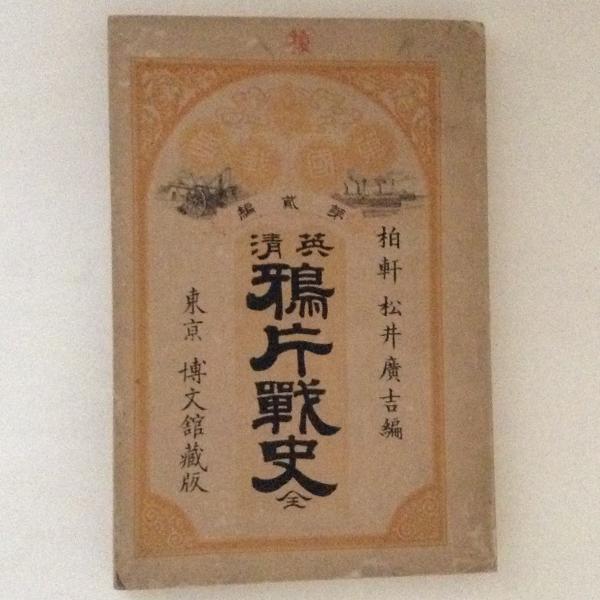 萬國戰史
第貳編
英清
鴉片戰史
全
柏軒 松井廣吉編
東京 博文館藏版